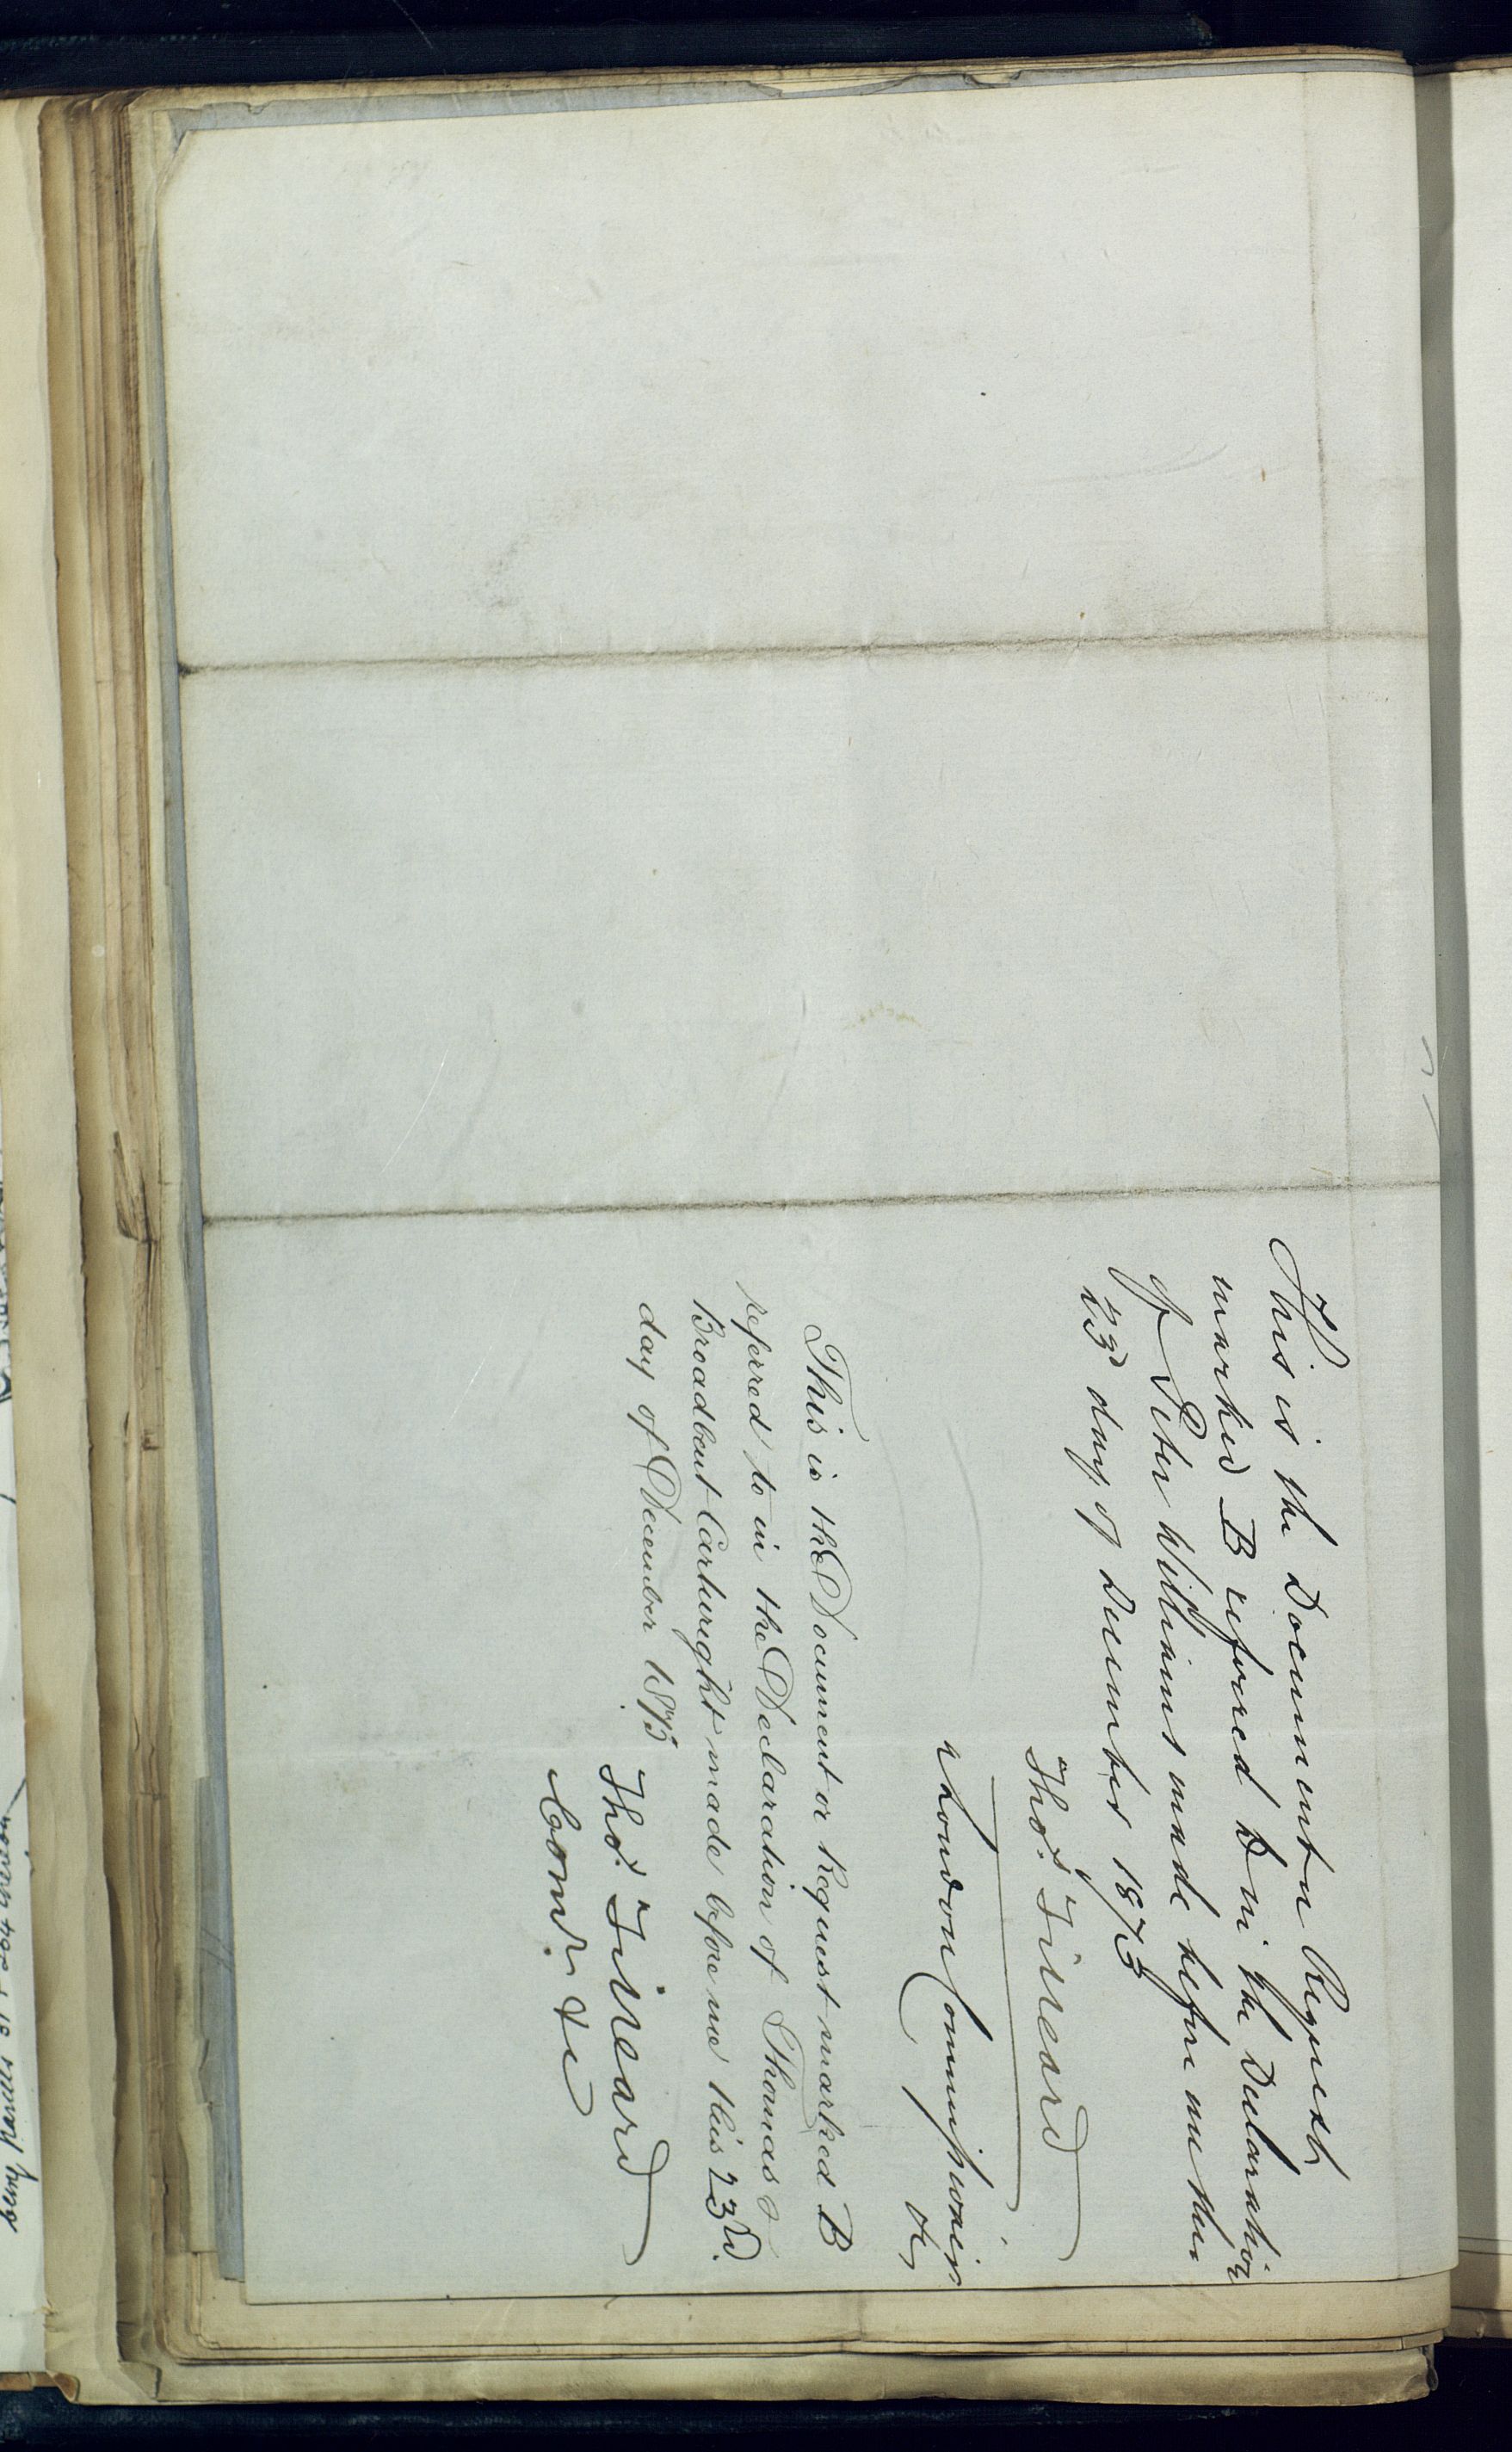 This is the Document or Request
marked B refered to in the Declaration
of Peter Williams made before me this
23d day of December 1873
Thos.
London Commissioner
&c
This is the Document or Request marked B
referred to in the Declaration of Thomas
Broadbent Cartwright made before me this 23rd.
day of December 1873
Thos.
Comr. &c